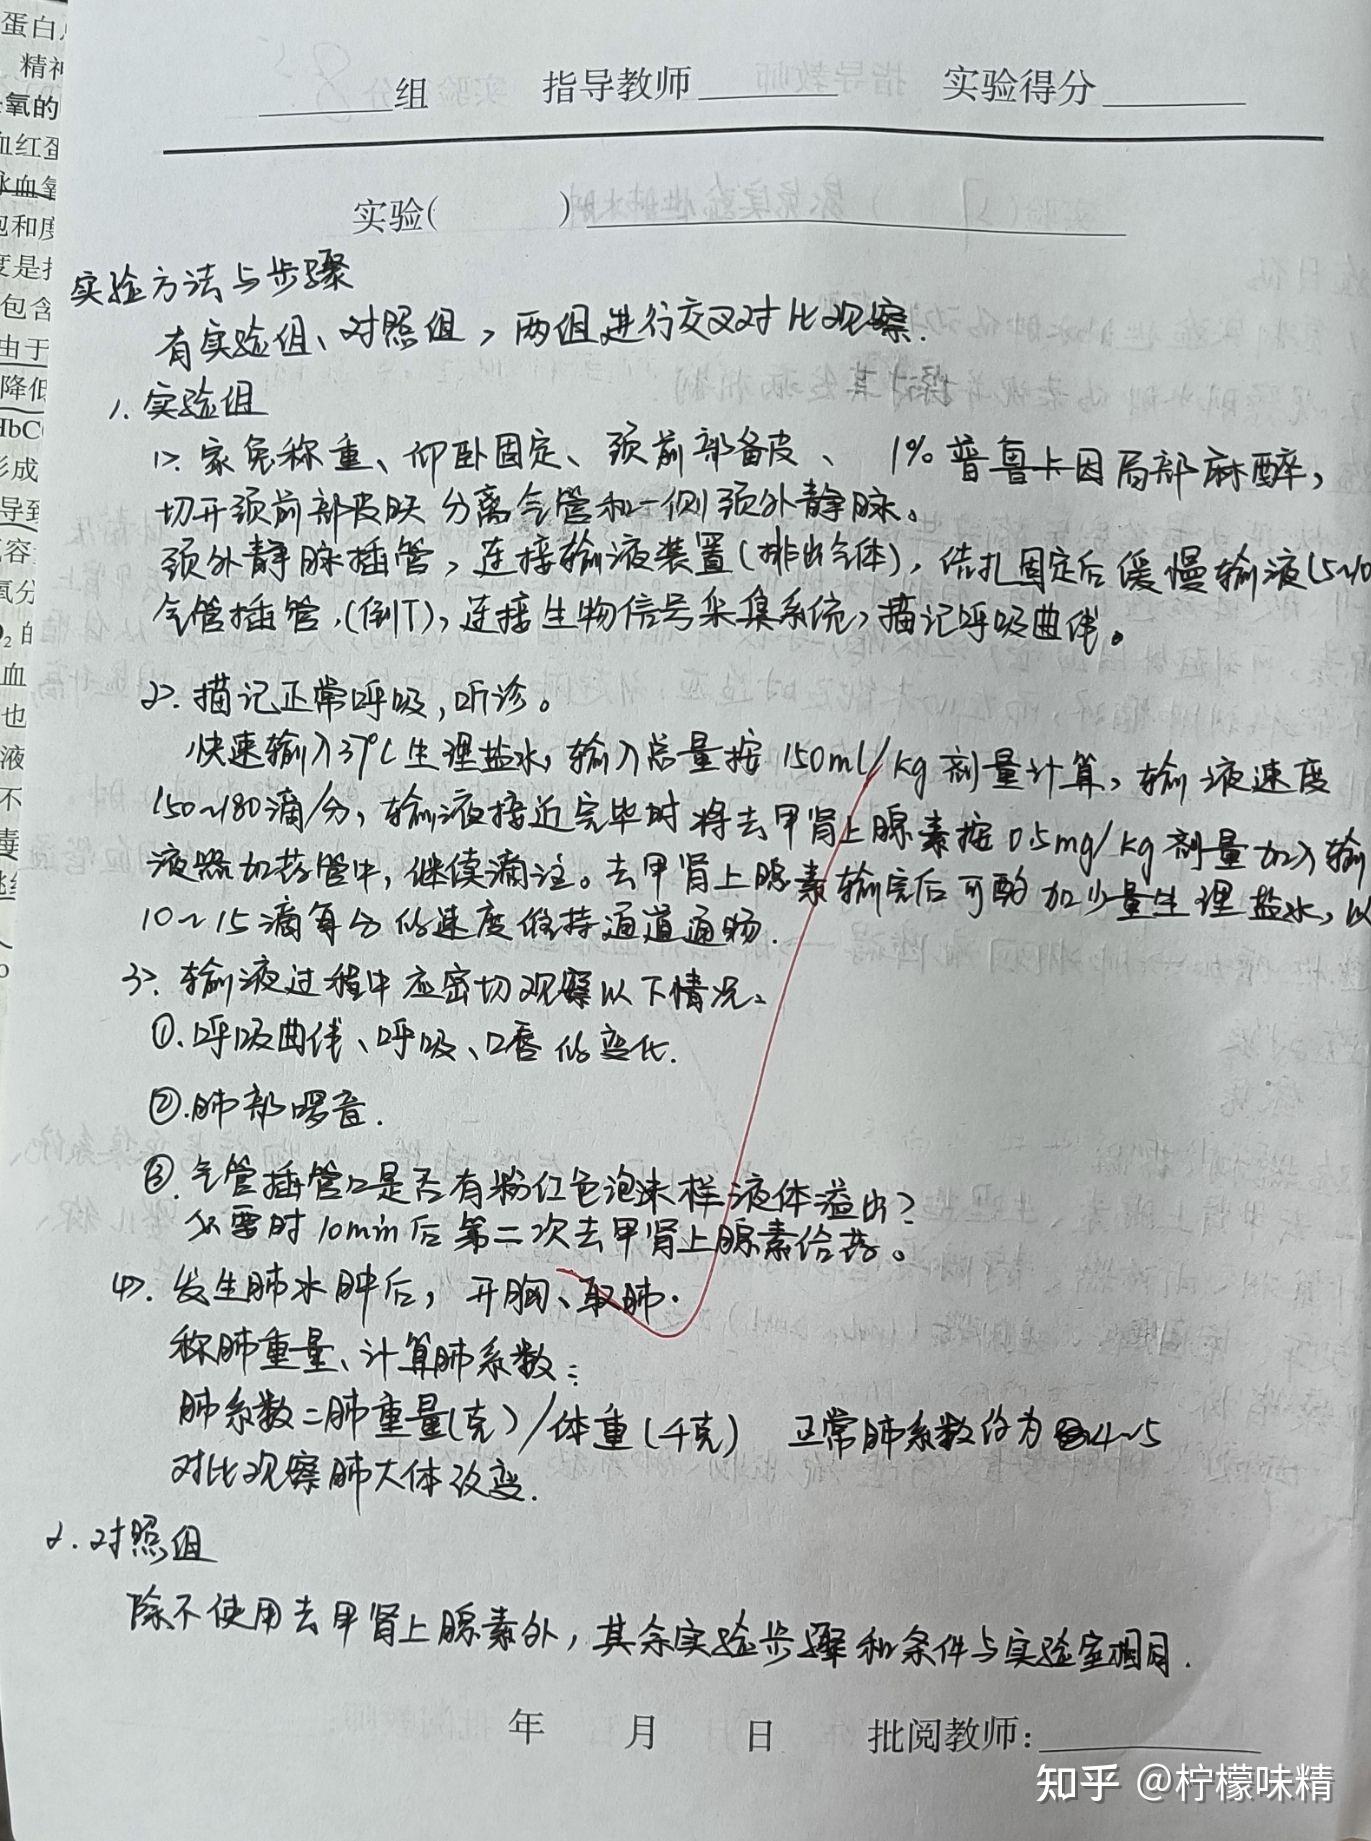 蛋白
精神
氧的
血红蛋
脉血氧
饱和度
度是指
包含
由于
降低
HbC
形成
导致
容
氧分
O₂的
血
也
液
不
毒
组 指导教师 实验得分
实验( )
实验方法与步骤
有实验组、对照组，两组进行交叉对比观察.
1. 实验组
1>. 家兔称重、仰卧固定、颈前部备皮、 1%普鲁卡因局部麻醉，
切开颈前部皮肤 分离气管和一侧颈外静脉。
颈外静脉插管，连接输液装置(排出气体)，结扎固定后缓慢输液(5~10
气管插管，(倒T)，连接生物信号采集系统，描记呼吸曲线。
2>. 描记正常呼吸，听诊。
快速输入37℃生理盐水，输入总量按150ml/kg剂量计算，输液速度
150~180滴/分，输液接近完毕时将去甲肾上腺素按0.5mg/kg剂量加入输
液器加药管中，继续滴注。去甲肾上腺素输完后可酌加少量生理盐水，以
10~15滴每分的速度维持通道通畅.
3>. 输液过程中应密切观察以下情况、
①.呼吸曲线、呼吸、口唇的变化.
②.肺部啰音.
③.气管插管口是否有粉红色泡沫样液体溢出？
必要时10min后第二次去甲肾上腺素给药。
4>. 发生肺水肿后，开胸、取肺.
称肺重量、计算肺系数：
肺系数=肺重量(克)/体重(千克) 正常肺系数约为4~5
对比观察肺大体改变.
2. 对照组
除不使用去甲肾上腺素外，其余实验步骤和条件与实验室相同.
年 月 日 批阅教师:
知乎 @柠檬味精